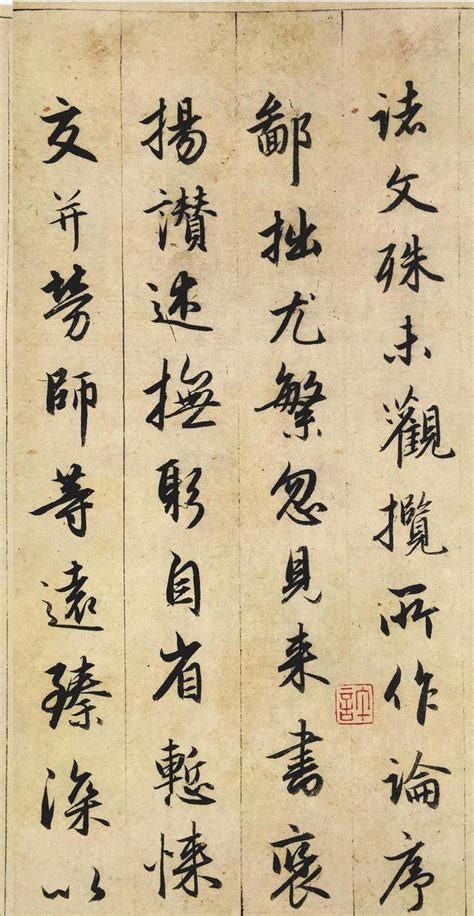 諸文殊未觀攬所作論序
鄙拙尤繁忽見来書褒
揚讃述撫躬自省慙悚
交并勞師等遠臻深以